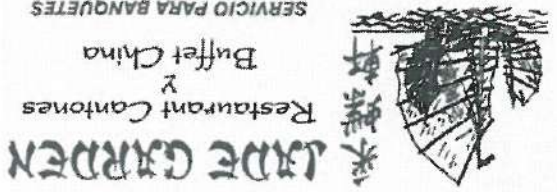 JADE GARDEN
Restaurant Cantones
y
Buffet China
SERVICIO PARA BANQUETES